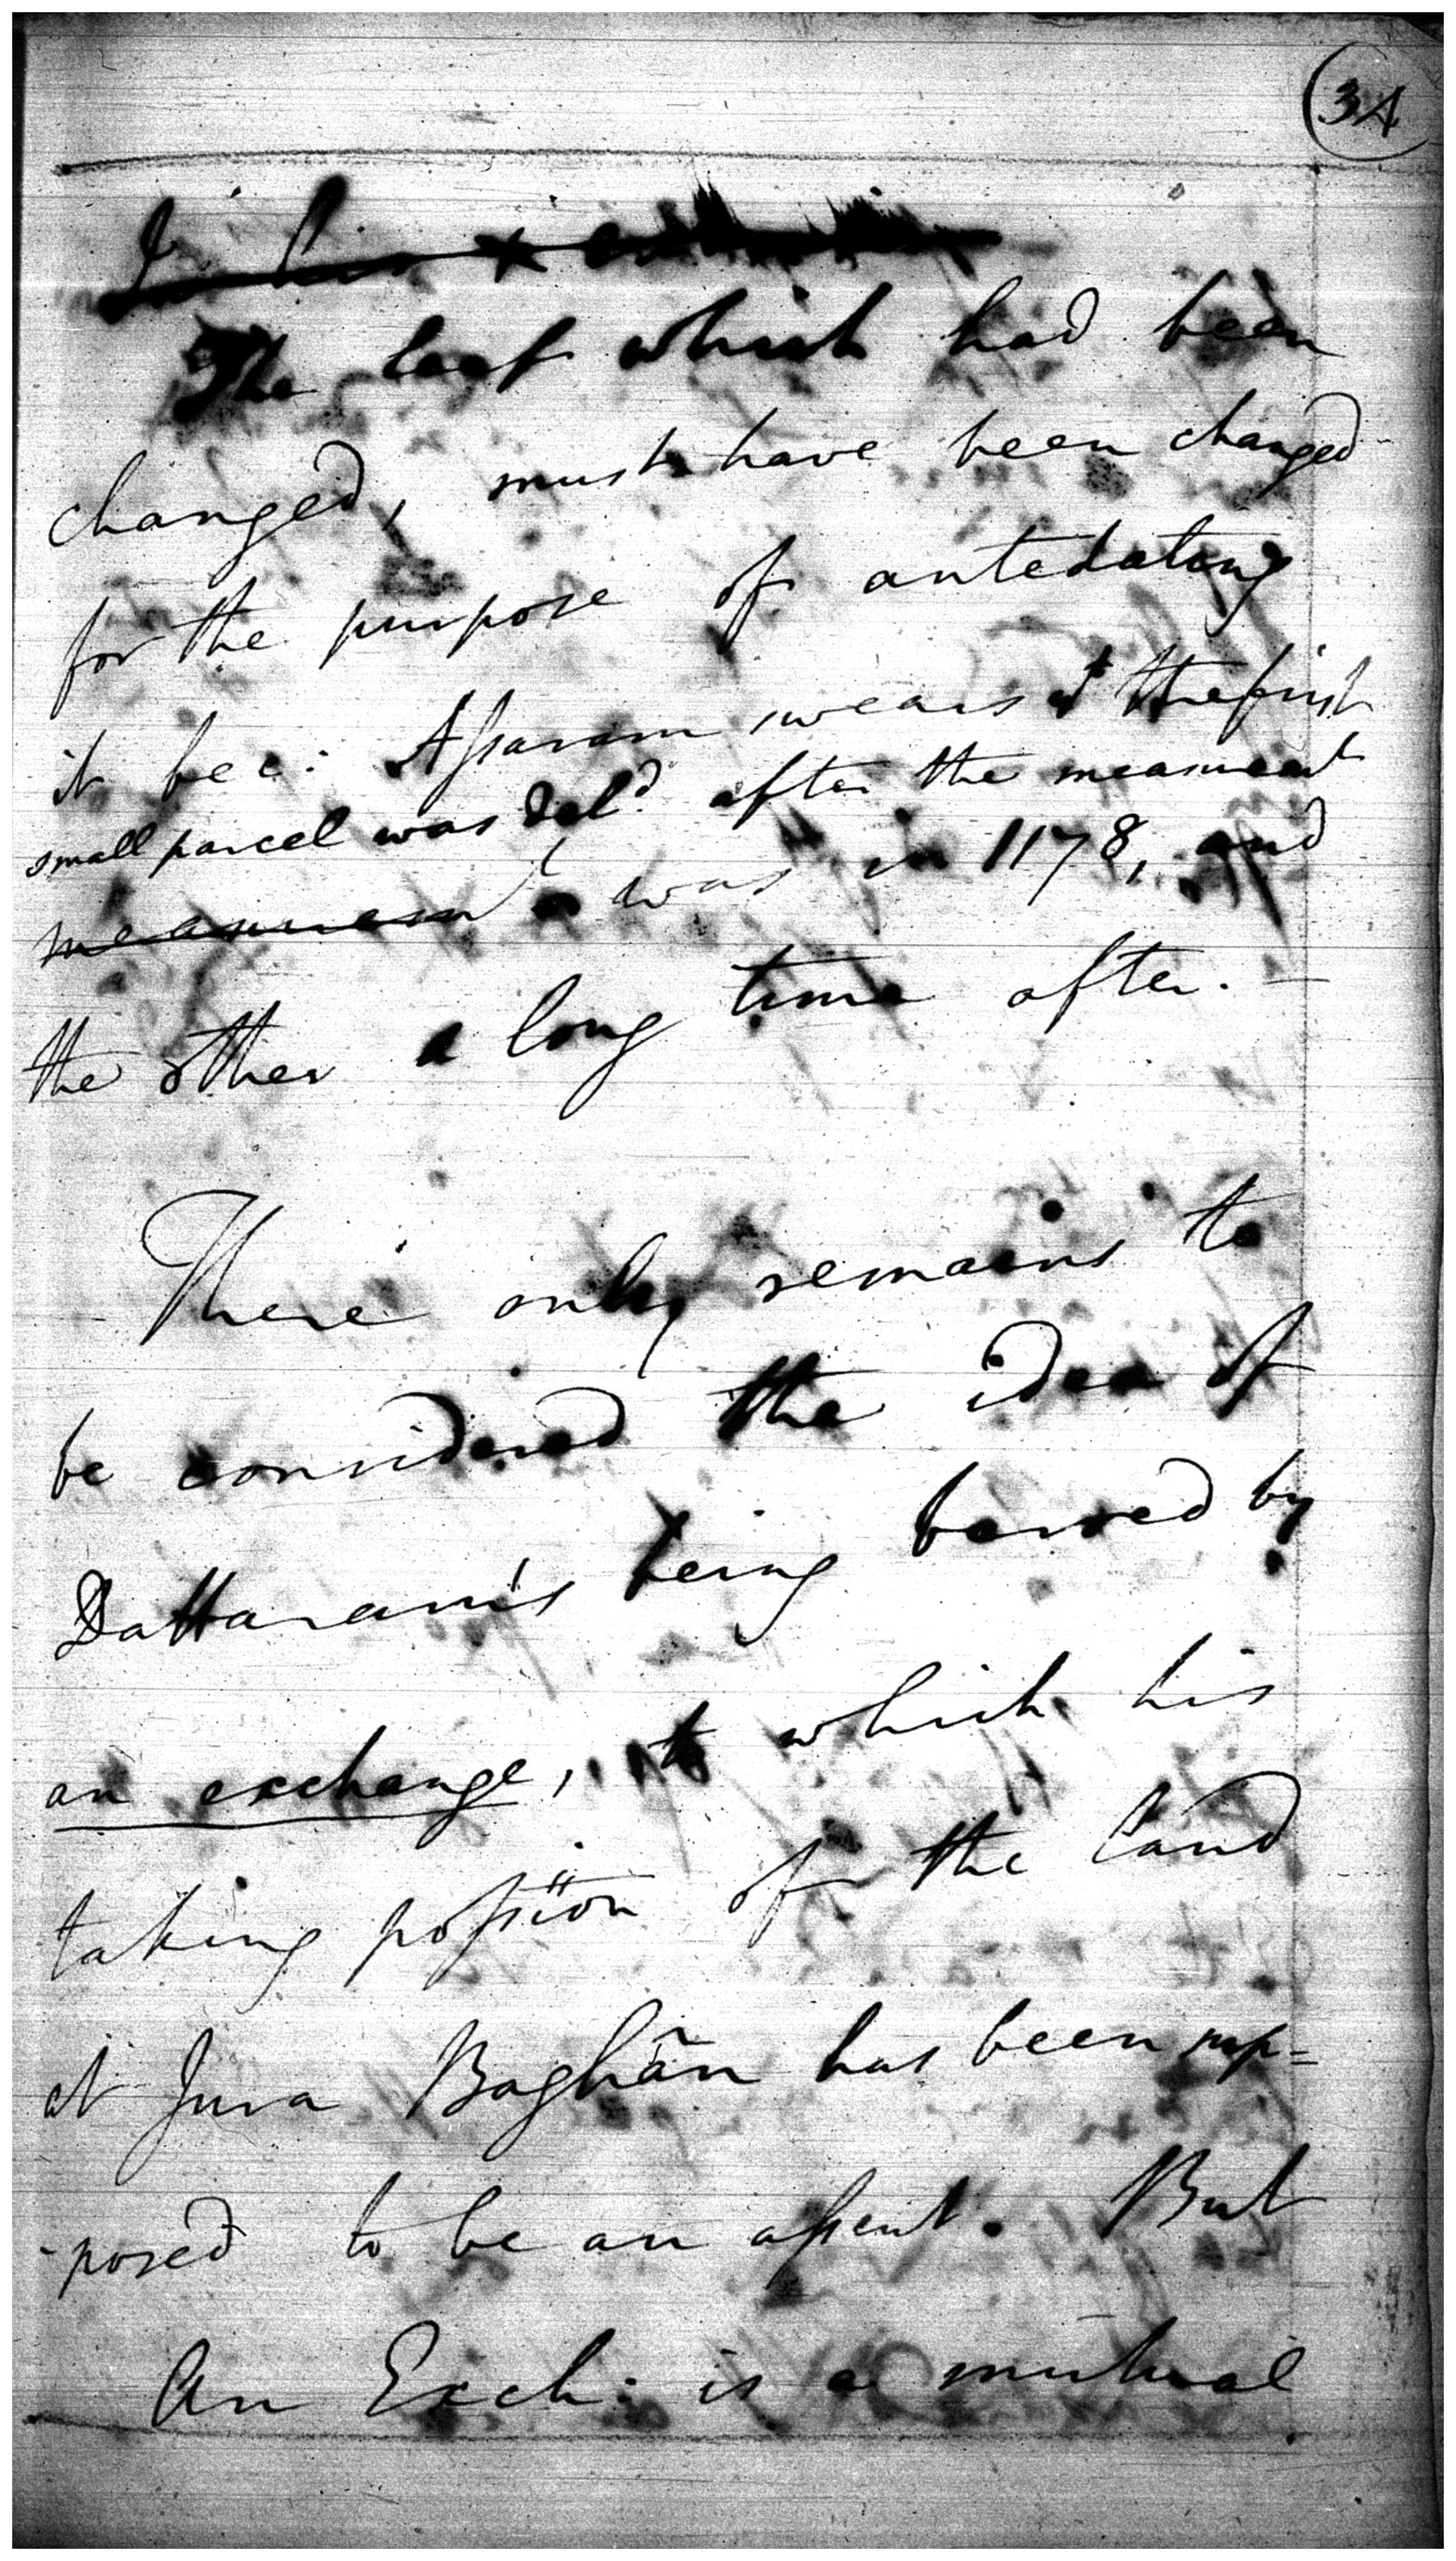 34
The leaf which had been
changed, must have been changed
for the purpose of antedating
it bec: Assaram swears yt the first
small parcel was deld after the measuremt
measurem was in 1178, and
the other a long time after. —
There only remains to
be considered the idea of
Dattaram's being barred by
an exchange, to which his
taking possion of the land
at Jura Baghân has been sup=
-posed to be an assent. But
An Exch: is a mutual